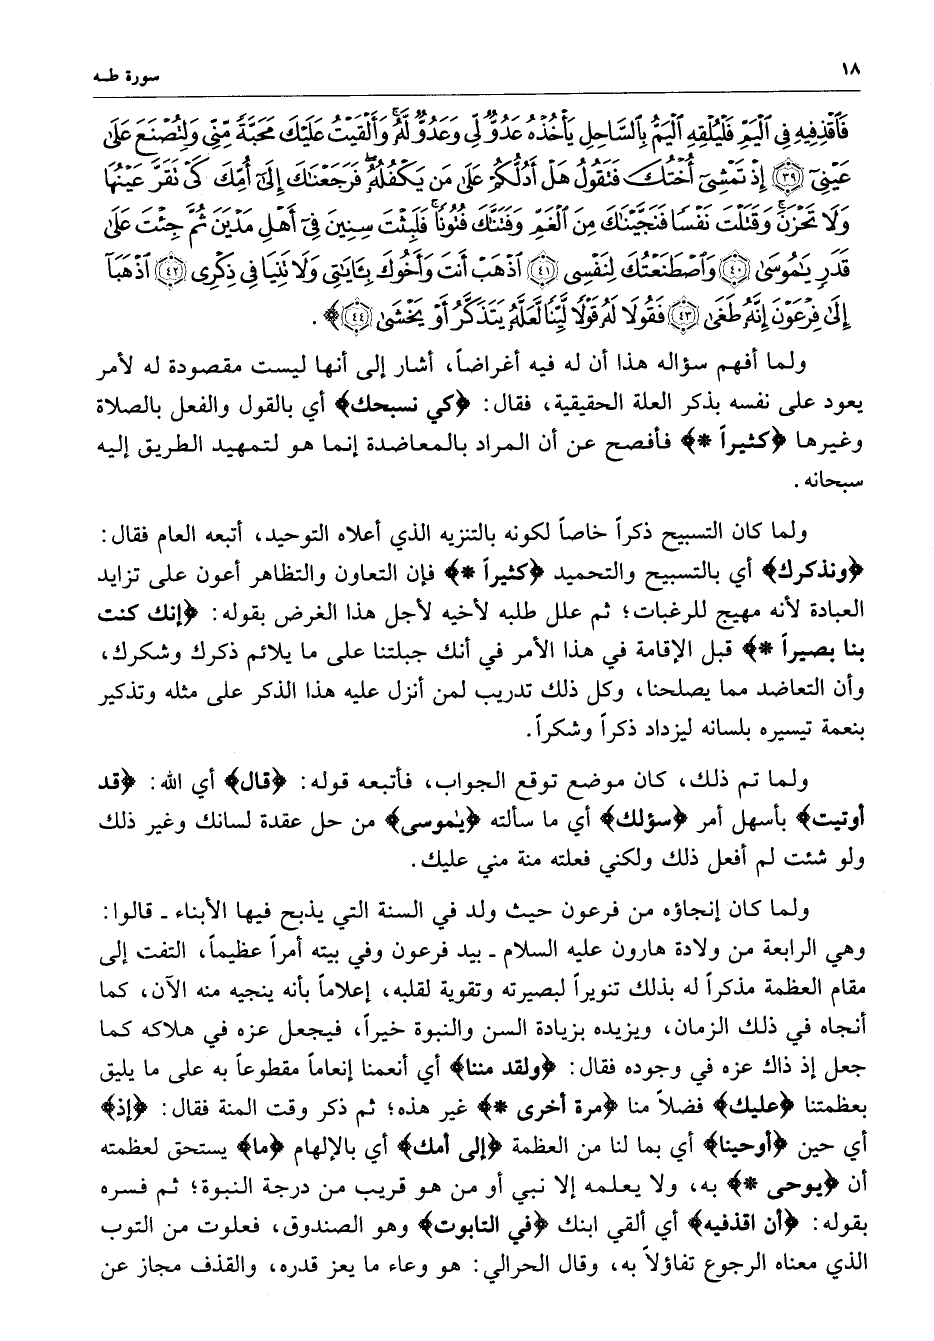 ١٨
سورة طـه
فَٱقْذِفِيهِ فِى ٱلْيَمِّ فَلْيُلْقِهِ ٱلْيَمُّ بِٱلسَّاحِلِ يَأْخُذْهُ عَدُوٌّ لِّى وَعَدُوٌّ لَّهُۥ ۚ وَأَلْقَيْتُ عَلَيْكَ مَحَبَّةً مِّنِّى وَلِتُصْنَعَ عَلَىٰ
عَيْنِىٓ ﴿٣٩﴾ إِذْ تَمْشِىٓ أُخْتُكَ فَتَقُولُ هَلْ أَدُلُّكُمْ عَلَىٰ مَن يَكْفُلُهُۥ ۖ فَرَجَعْنَٰكَ إِلَىٰٓ أُمِّكَ كَىْ نَقَرَّ عَيْنُهَا
وَلَا تَحْزَنَ ۚ وَقَتَلْتَ نَفْسًا فَنَجَّيْنَٰكَ مِنَ ٱلْغَمِّ وَفَتَنَّٰكَ فُتُونًا ۚ فَلَبِثْتَ سِنِينَ فِىٓ أَهْلِ مَدْيَنَ ثُمَّ جِئْتَ عَلَىٰ
قَدَرٍ يَٰمُوسَىٰ ﴿٤٠﴾ وَٱصْطَنَعْتُكَ لِنَفْسِى ﴿٤١﴾ ٱذْهَبْ أَنتَ وَأَخُوكَ بِـَٔايَٰتِى وَلَا تَنِيَا فِى ذِكْرِى ﴿٤٢﴾ ٱذْهَبَآ
إِلَىٰ فِرْعَوْنَ إِنَّهُۥ طَغَىٰ ﴿٤٣﴾ فَقُولَا لَهُۥ قَوْلًا لَّيِّنًا لَّعَلَّهُۥ يَتَذَكَّرُ أَوْ يَخْشَىٰ ﴿٤٤﴾﴾ .
ولما أفهم سؤاله هذا أن له فيه أغراضاً، أشار إلى أنها ليست مقصودة له لأمر
يعود على نفسه بذكر العلة الحقيقية، فقال: ﴿كي نسبحك﴾ أي بالقول والفعل بالصلاة
وغيرها ﴿كثيراً *﴾ فأفصح عن أن المراد بالمعاضدة إنما هو لتمهيد الطريق إليه
سبحانه .
ولما كان التسبيح ذكراً خاصاً لكونه بالتنزيه الذي أعلاه التوحيد، أتبعه العام فقال:
﴿ونذكرك﴾ أي بالتسبيح والتحميد ﴿كثيراً *﴾ فإن التعاون والتظاهر أعون على تزايد
العبادة لأنه مهيج للرغبات؛ ثم علل طلبه لأخيه لأجل هذا الغرض بقوله: ﴿إنك كنت
بنا بصيراً *﴾ قبل الإقامة في هذا الأمر في أنك جبلتنا على ما يلائم ذكرك وشكرك،
وأن التعاضد مما يصلحنا، وكل ذلك تدريب لمن أنزل عليه هذا الذكر على مثله وتذكير
بنعمة تيسيره بلسانه ليزداد ذكراً وشكراً.
ولما تم ذلك، كان موضع توقع الجواب، فأتبعه قوله: ﴿قال﴾ أي الله: ﴿قد
أوتيت﴾ بأسهل أمر ﴿سؤلك﴾ أي ما سألته ﴿يٰموسى﴾ من حل عقدة لسانك وغير ذلك
ولو شئت لم أفعل ذلك ولكني فعلته منة مني عليك.
ولما كان إنجاؤه من فرعون حيث ولد في السنة التي يذبح فيها الأبناء ـ قالوا:
وهي الرابعة من ولادة هارون عليه السلام ـ بيد فرعون وفي بيته أمراً عظيماً، التفت إلى
مقام العظمة مذكراً له بذلك تنويراً لبصيرته وتقوية لقلبه، إعلاماً بأنه ينجيه منه الآن، كما
أنجاه في ذلك الزمان، ويزيده بزيادة السن والنبوة خيراً، فيجعل عزه في هلاكه كما
جعل إذ ذاك عزه في وجوده فقال: ﴿ولقد مننا﴾ أي أنعمنا إنعاماً مقطوعاً به على ما يليق
بعظمتنا ﴿عليك﴾ فضلاً منا ﴿مرة أخرى *﴾ غير هذه؛ ثم ذكر وقت المنة فقال: ﴿إذ﴾
أي حين ﴿أوحينا﴾ أي بما لنا من العظمة ﴿إلى أمك﴾ أي بالإلهام ﴿ما﴾ يستحق لعظمته
أن ﴿يوحى *﴾ به، ولا يعلمه إلا نبي أو من هو قريب من درجة النبوة؛ ثم فسره
بقوله: ﴿أن اقذفيه﴾ أي ألقي ابنك ﴿في التابوت﴾ وهو الصندوق، فعلوت من التوب
الذي معناه الرجوع تفاؤلاً به، وقال الحرالي: هو وعاء ما يعز قدره، والقذف مجاز عن